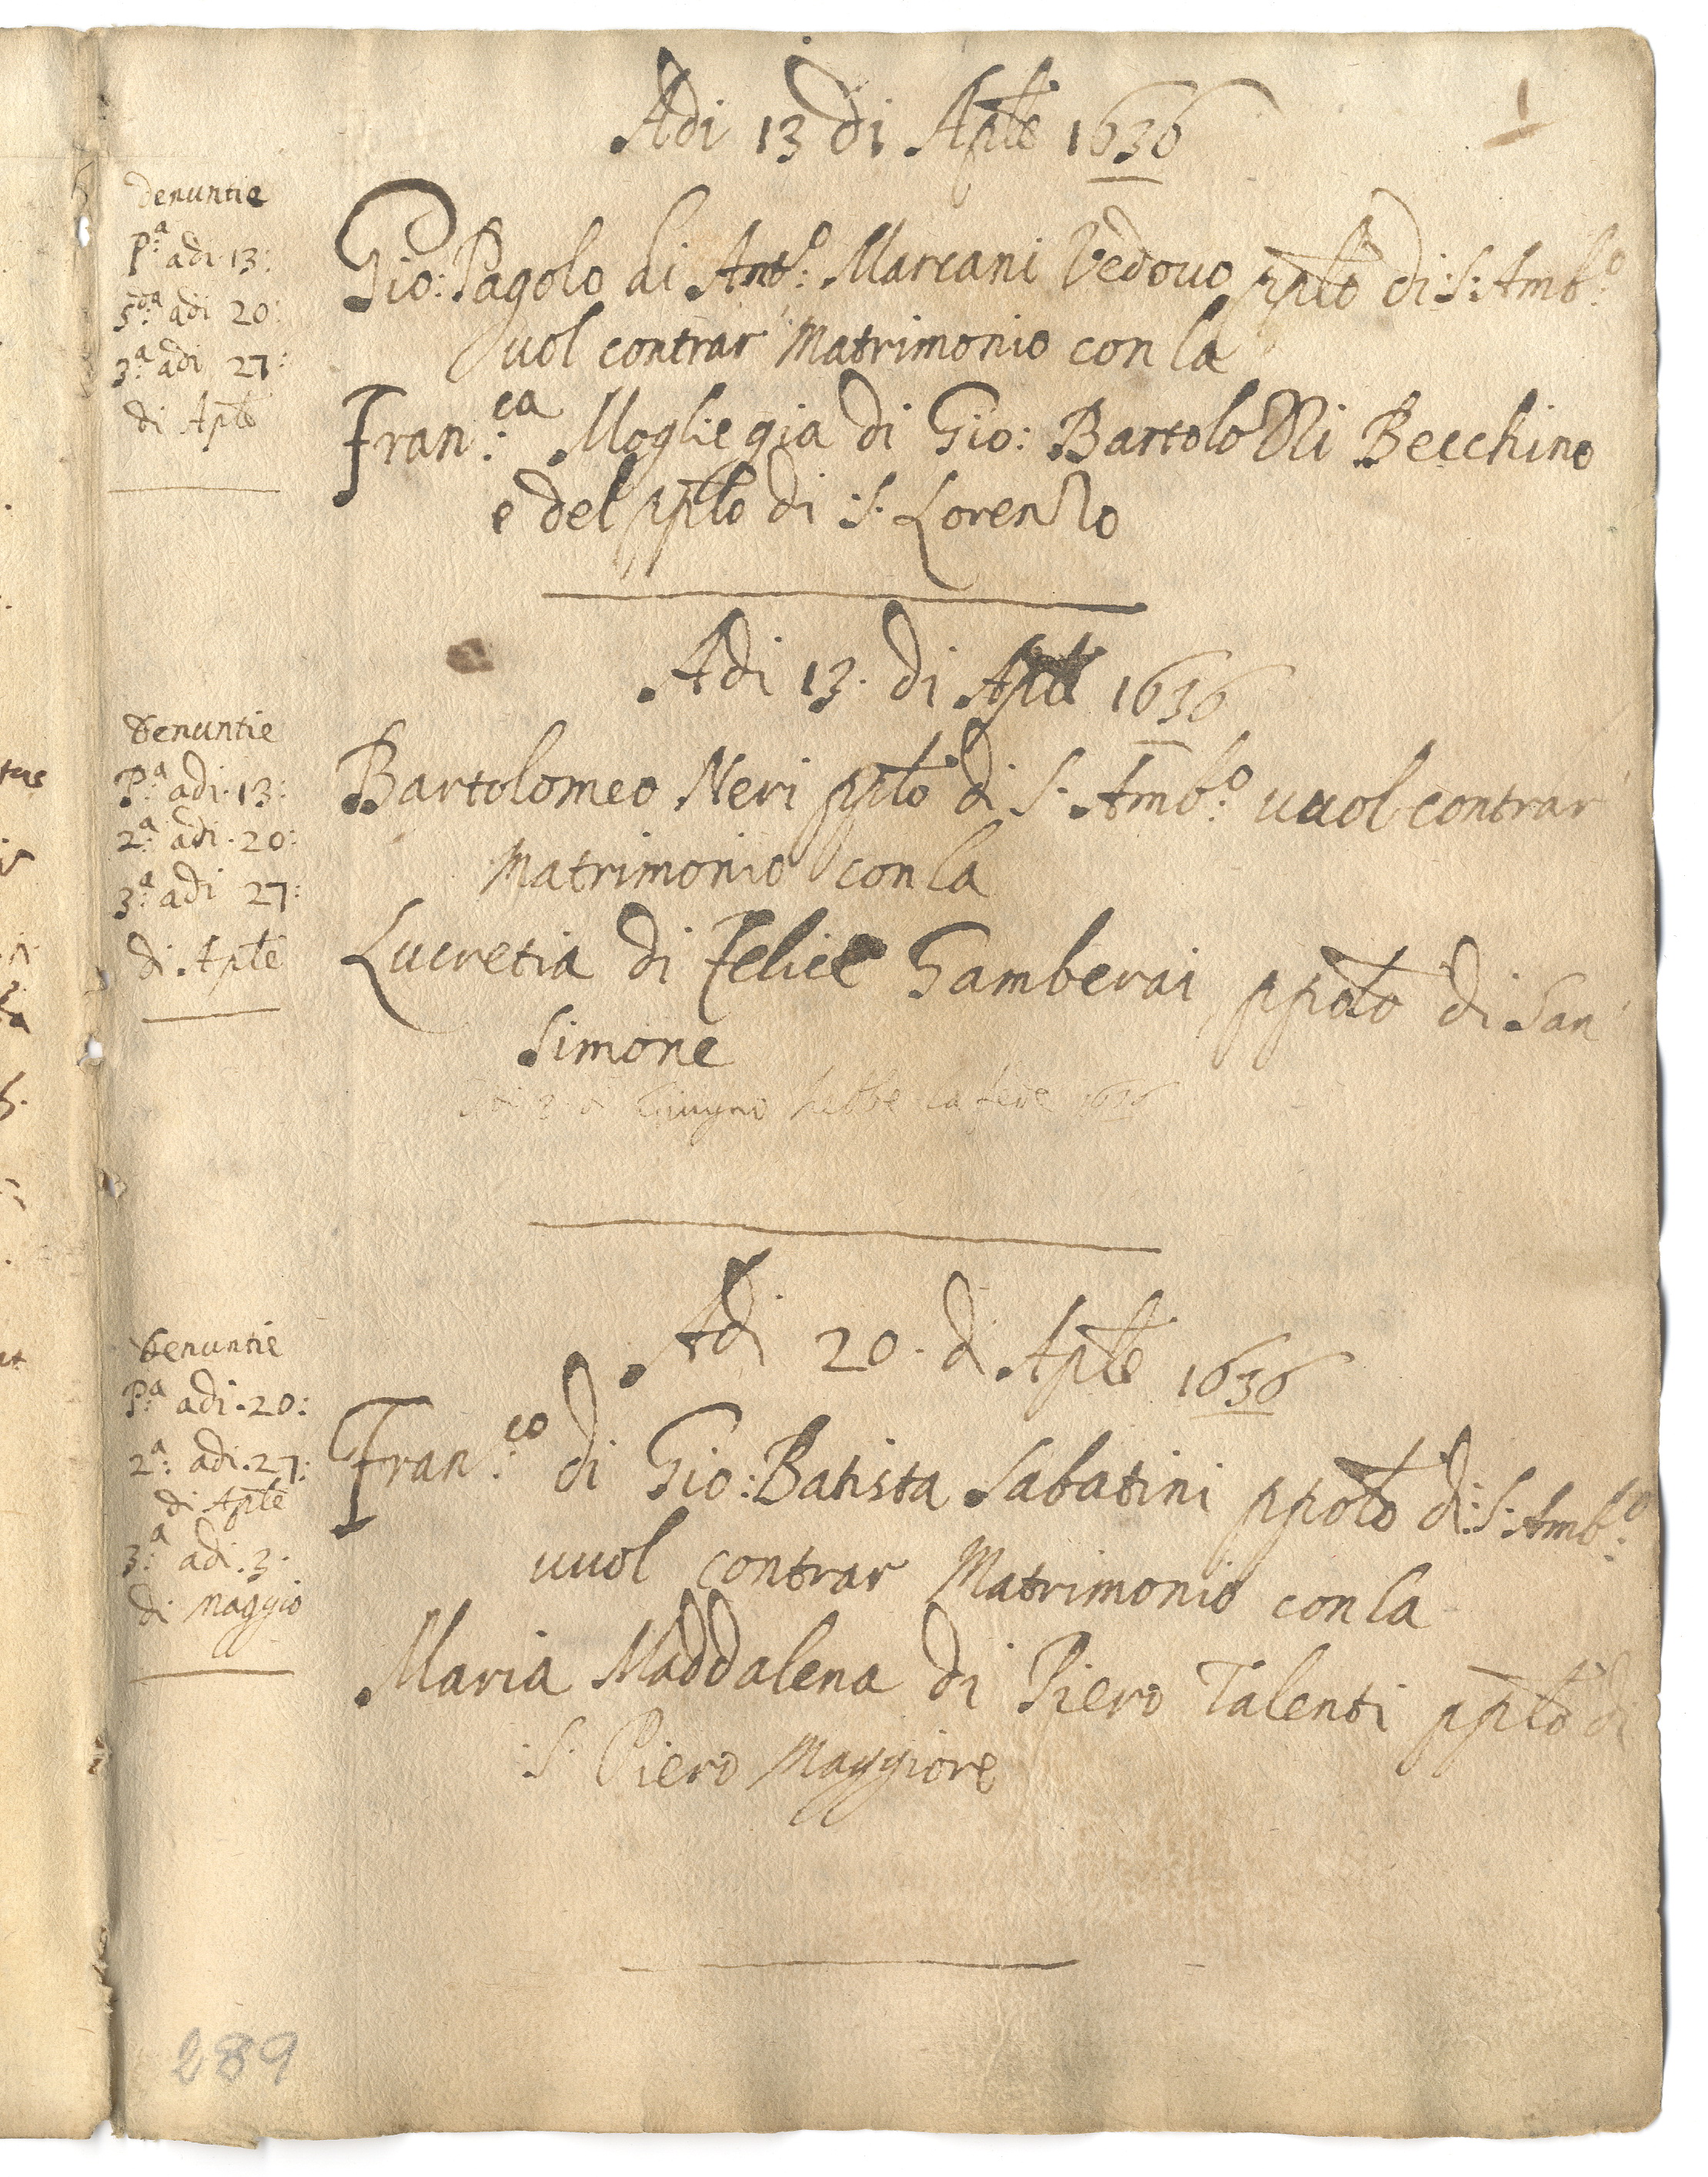 Adi 13 di Aple 1636
1
denuntie
P.ª adi 13:
5.da adi 20:
3.ª adi 27:
di Aple
Gio: Pagolo di Ant.o: Marcani Vedouo pplo di :S: Amb.o
uol contrar Matrimonio con la
Fran.ca Moglie gia di Gio: Bartolo Becchino
e del pplo di :S: Lorenzo
Adi 13. di Aple 1636
Denuntie
P.ª adi .13:
2.ª adi .20:
3.ª adi 27:
di Aple
Bartolomeo Neri pplo di S. Amb.o uuol contrar
Matrimonio con la
Lucretia di Felice Gamberai ppolo di San
Simone
Giugno hebbe la fede 1636
Adi 20. di Aple 1636
Denuntie
P.ª adi .20:
2.ª adi .27:
di Aple
3.ª adi .3.
di Maggio
Fran.co di Gio: Batista Sabatini ppolo di :S: Amb.o
uuol contrar Matrimonio con la
Maria Maddalena di Piero Talenti pplo di
:S: Piero Maggiore
289